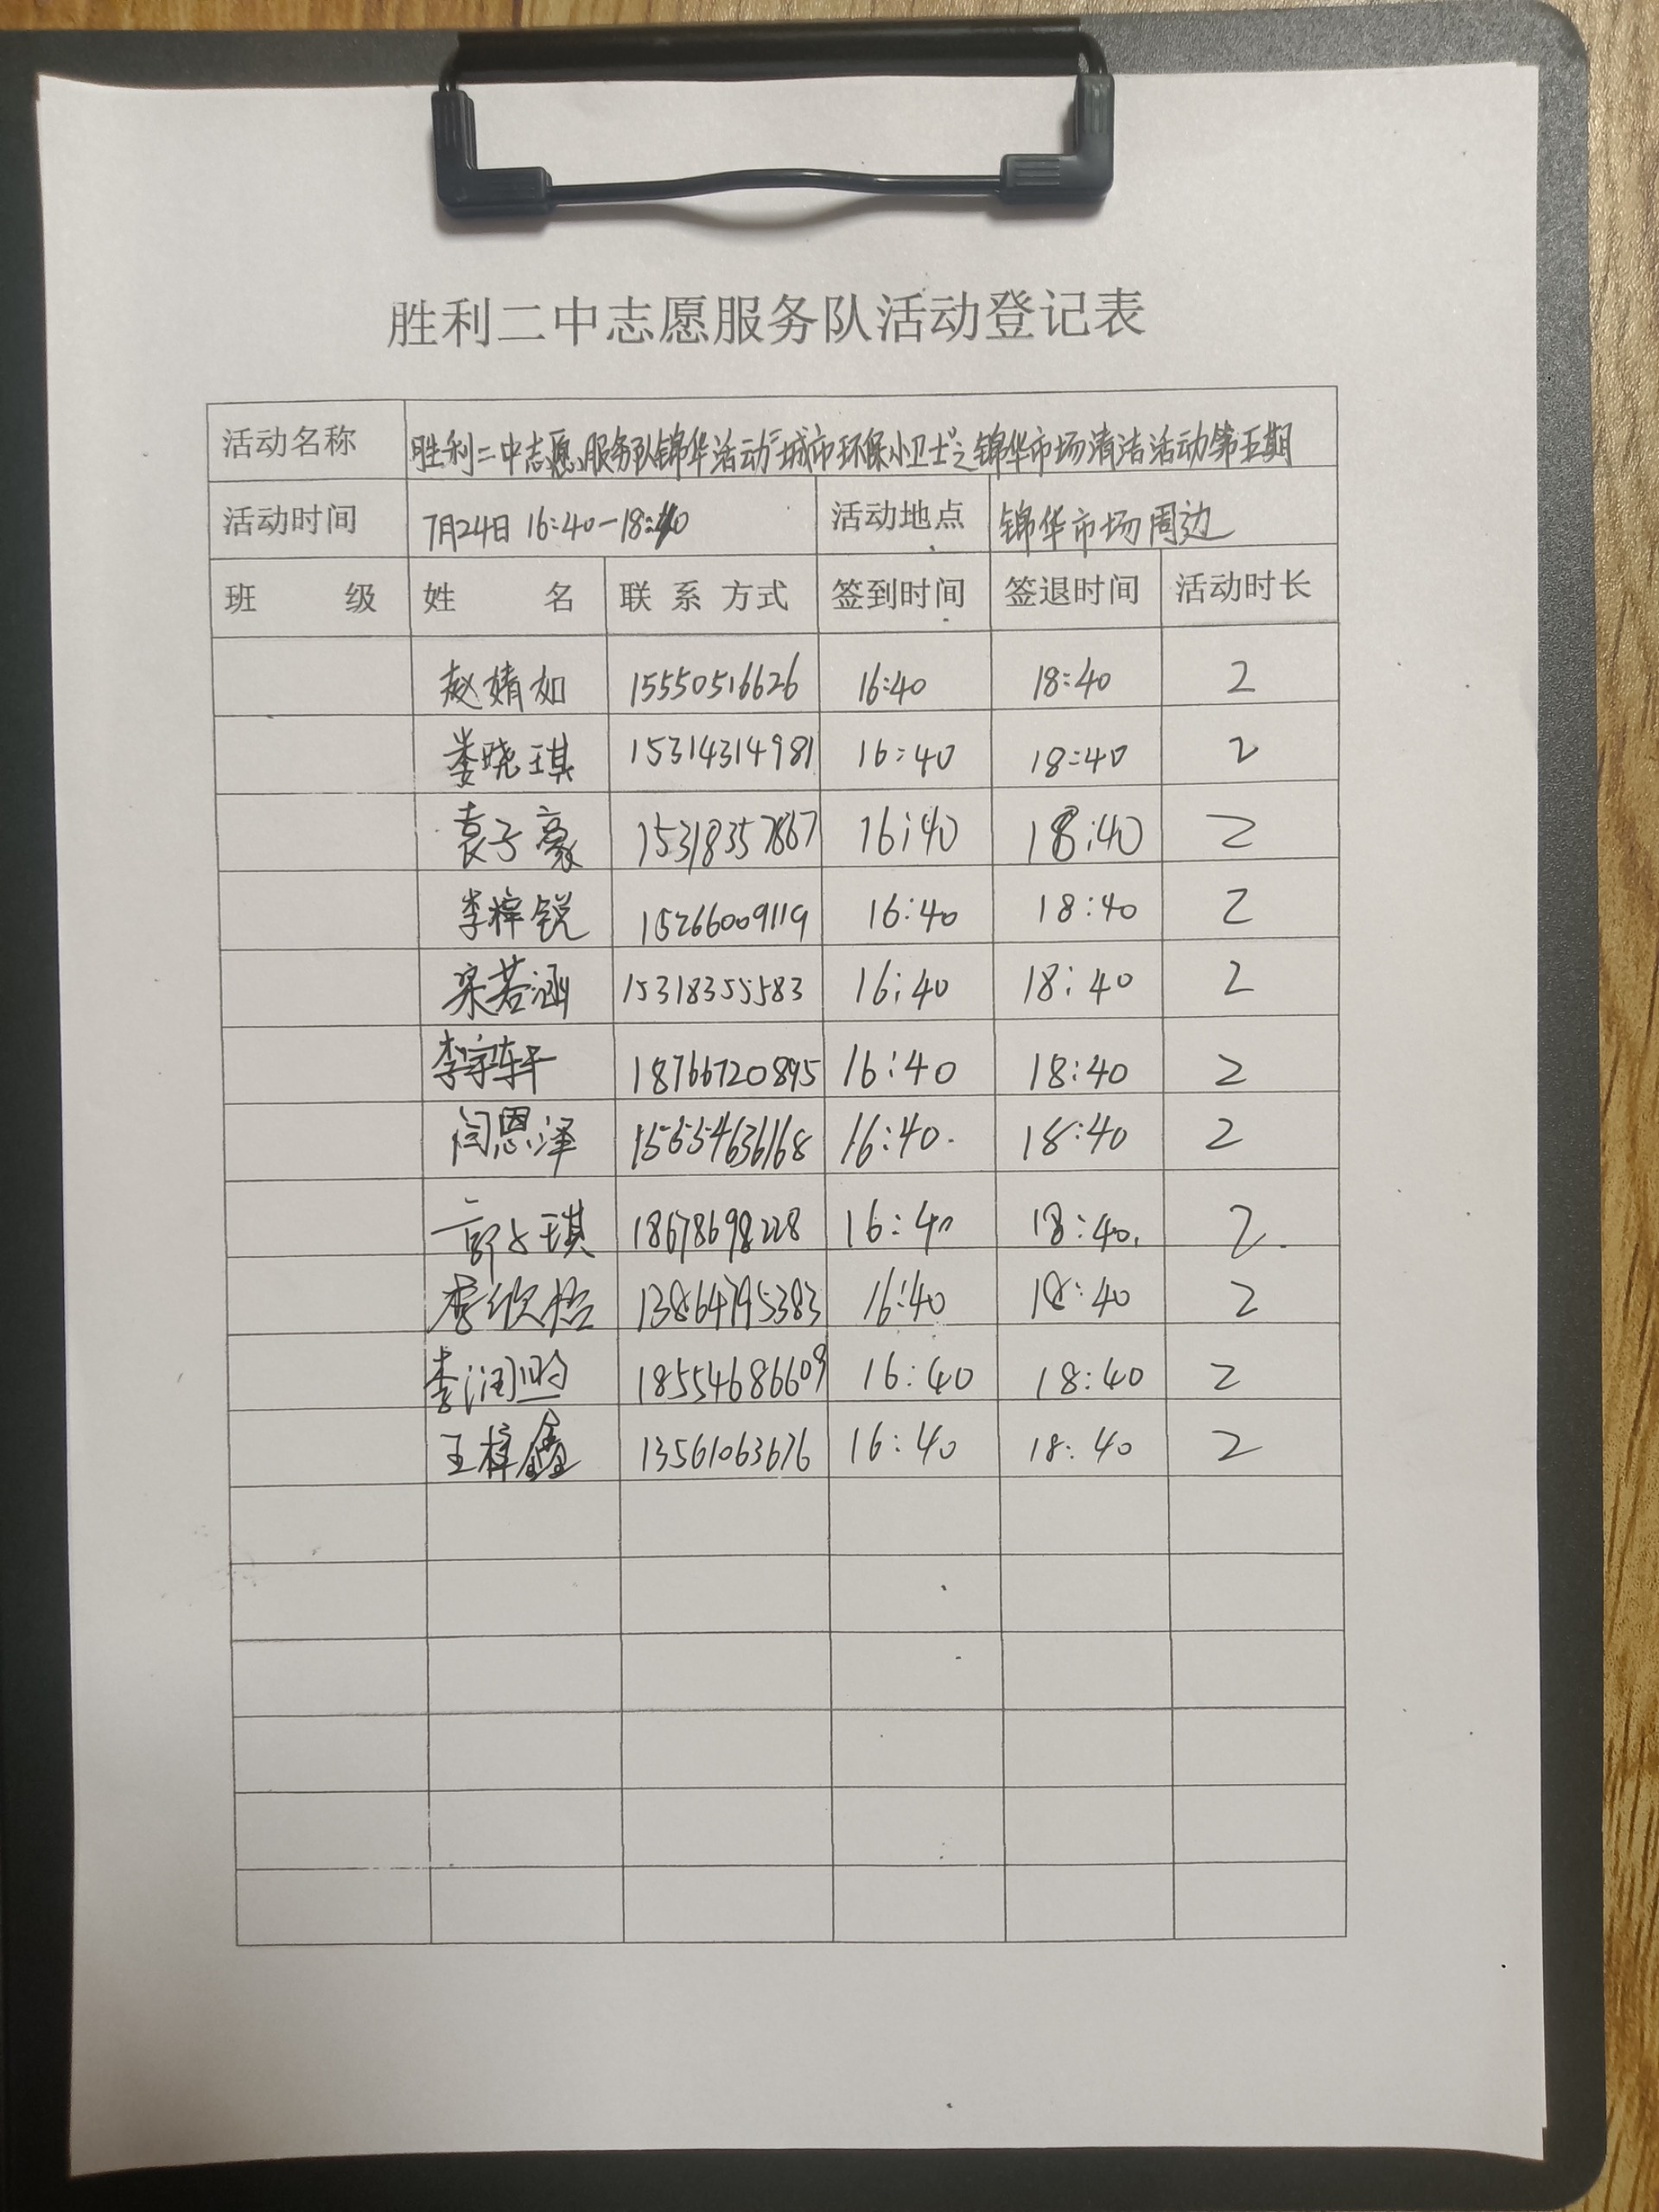 胜利二中志愿服务队活动登记表
活动名称 胜利二中志愿服务队锦华活动“城市环保小卫士”之锦华市场清洁活动第五期
活动时间 7月24日 16:40-18:40 活动地点 锦华市场周边
班 级 姓 名 联系方式 签到时间 签退时间 活动时长
赵婧如 15550516626 16:40 18:40 2
娄晓琪 15314314981 16:40 18:40 2
袁子豪 15318357867 16:40 18:40 2
李梓锐 15266009119 16:40 18:40 2
梁若涵 15318355583 16:40 18:40 2
李宇轩 18766720895 16:40 18:40 2
闫恩泽 15654636168 16:40. 18:40 2
郭文琪 18678698228 16:40 18:40. 2.
李欣怡 13864795383 16:40 18:40 2
李润昀 18554686609 16:40 18:40 2
王梓鑫 13561063676 16:40 18:40 2